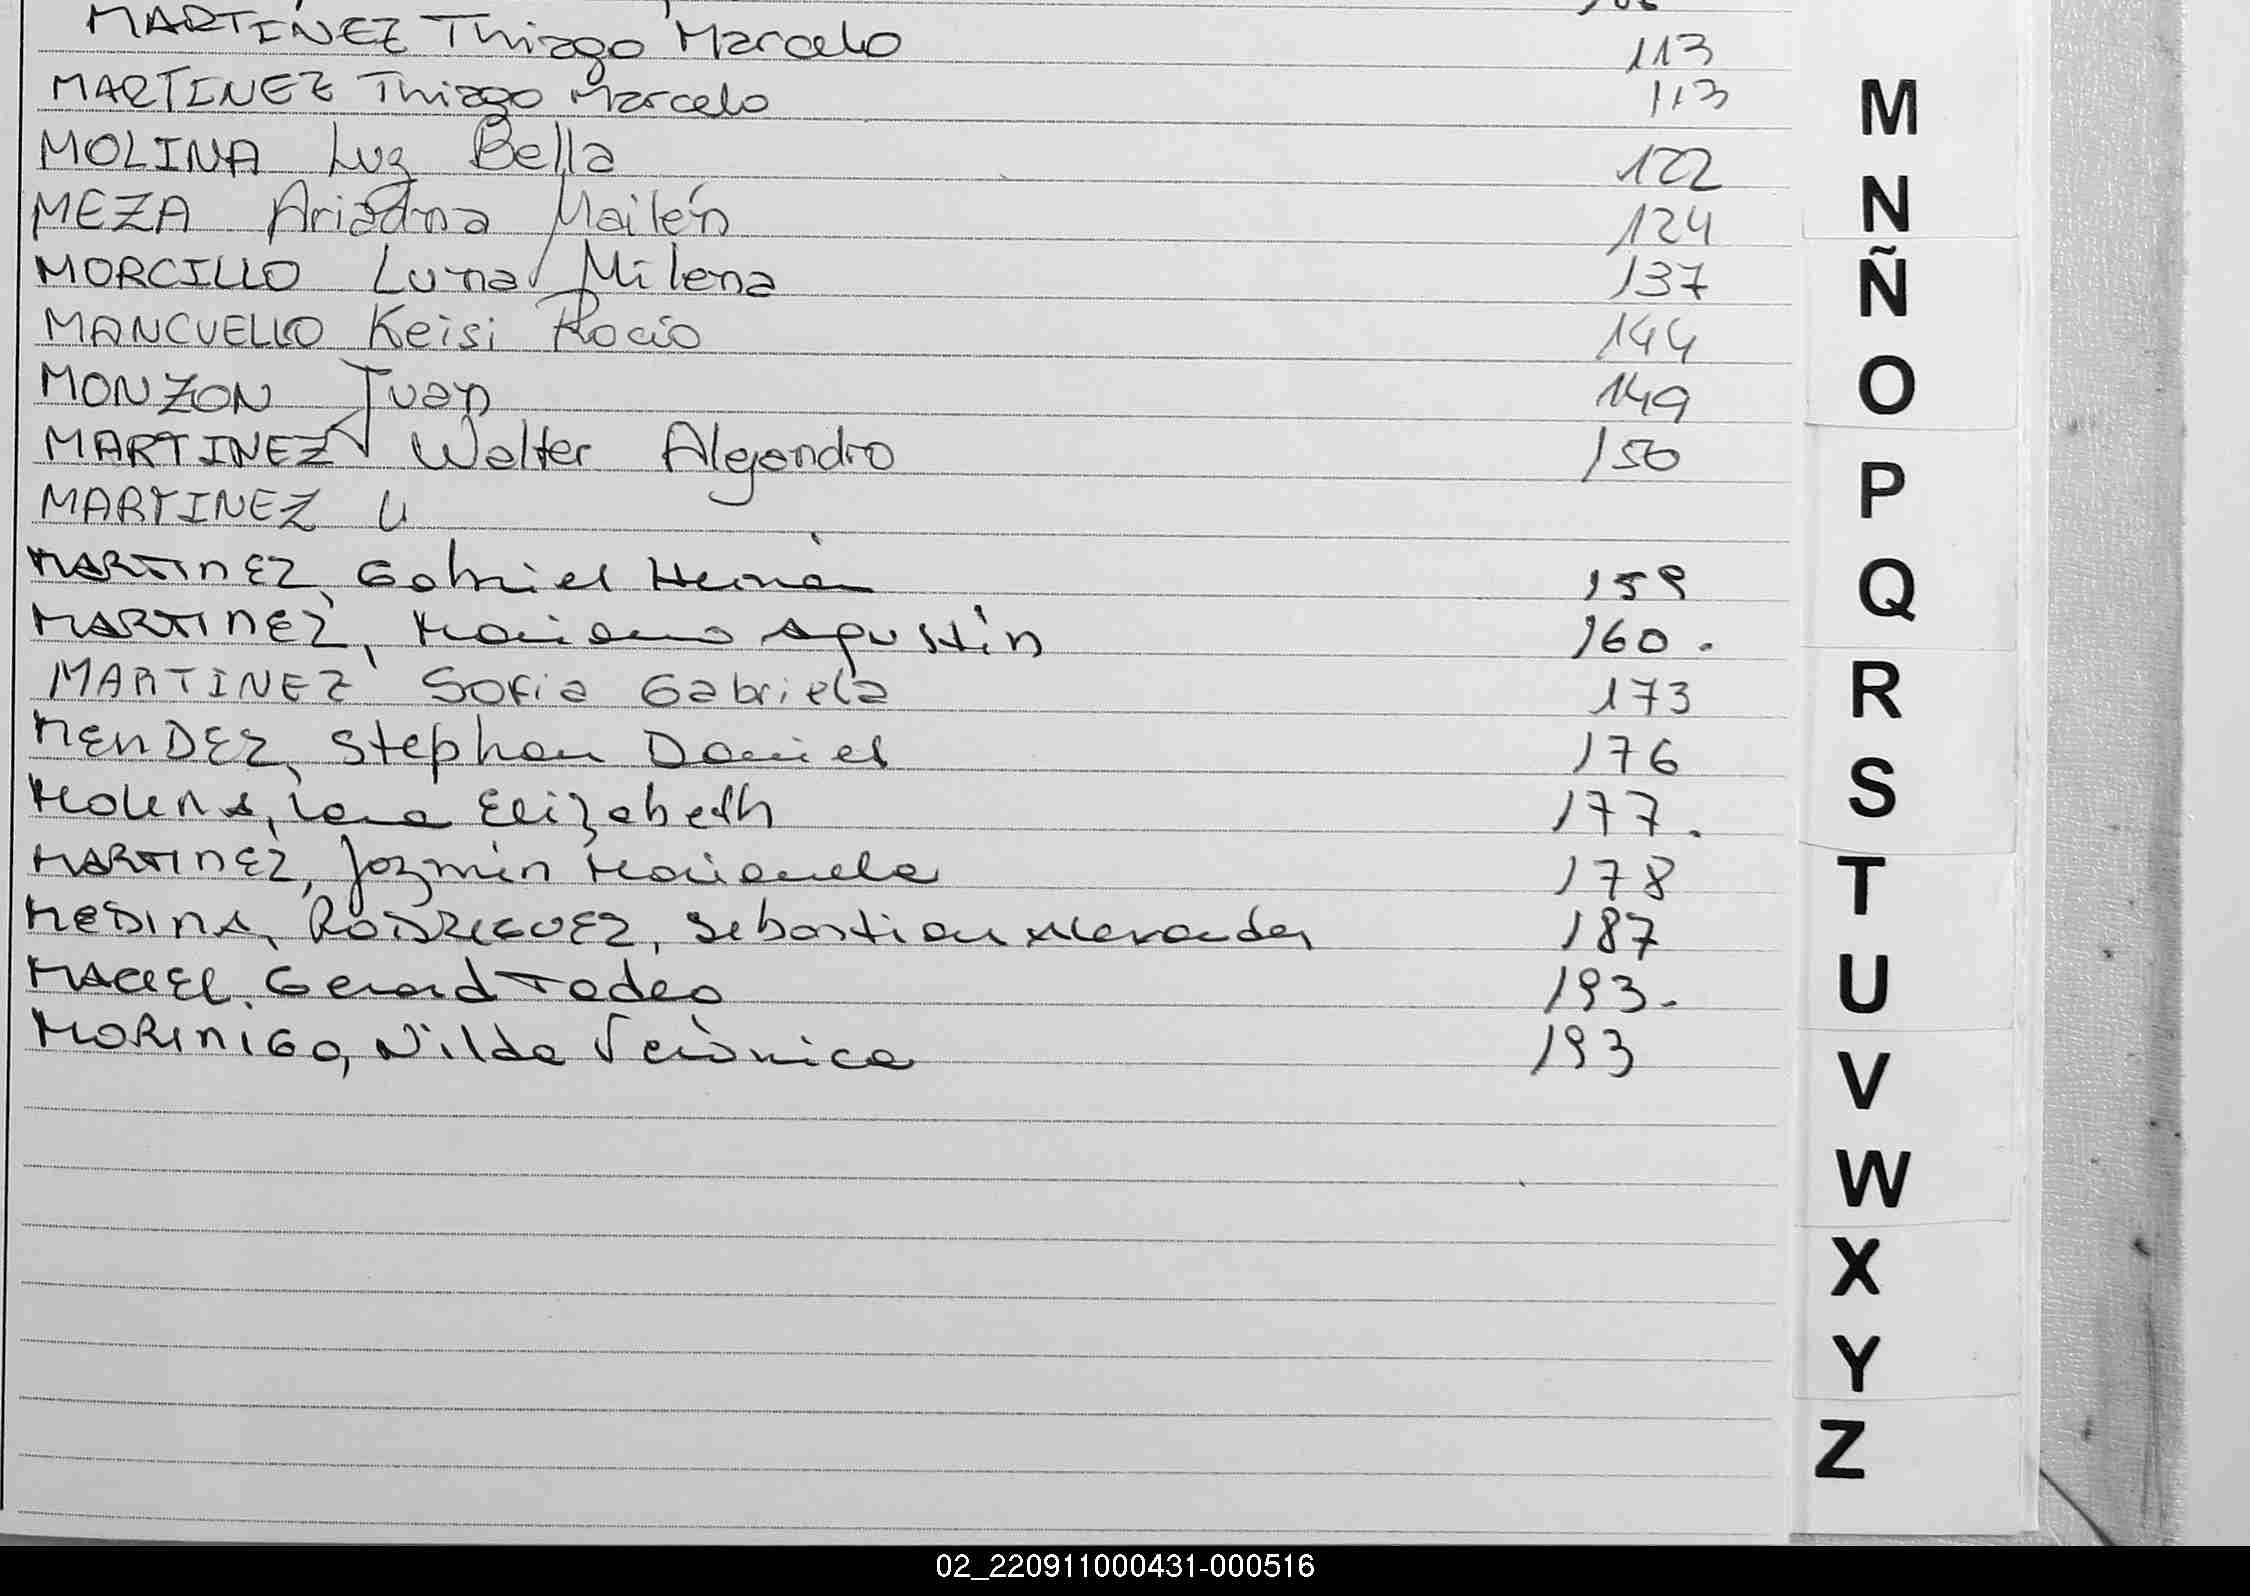 MARTÍNEZ Thiago Marcelo 113
MARTINEZ Thiago Marcelo 113
MOLINA Luz Bella 122
MEZA Ariadna Mailén 124
MORCILLO Luna Milena 137
MANCUELLO Keisi Rocío 144
MONZON Juan 149
MARTINEZ Walter Alejandro 150
MARTINEZ U
MARTINEZ, Gabriel Hernán 159
MARTINEZ, Mariano Agustín 160.
MARTINEZ Sofia Gabriela 173
MENDEZ, Stephan Daniel 176
MOLINA, Lara Elizabeth 177.
MARTINEZ, Jazmín Marianela 178
MEDINA, RODRIGUEZ, Sebastian Alexander 187
MACIEL, Gerard Tadeo 193.
MORINIGO, Nilda Verónica 193
M
N
Ñ
O
P
Q
R
S
T
U
V
W
X
Y
Z
02_220911000431-000516